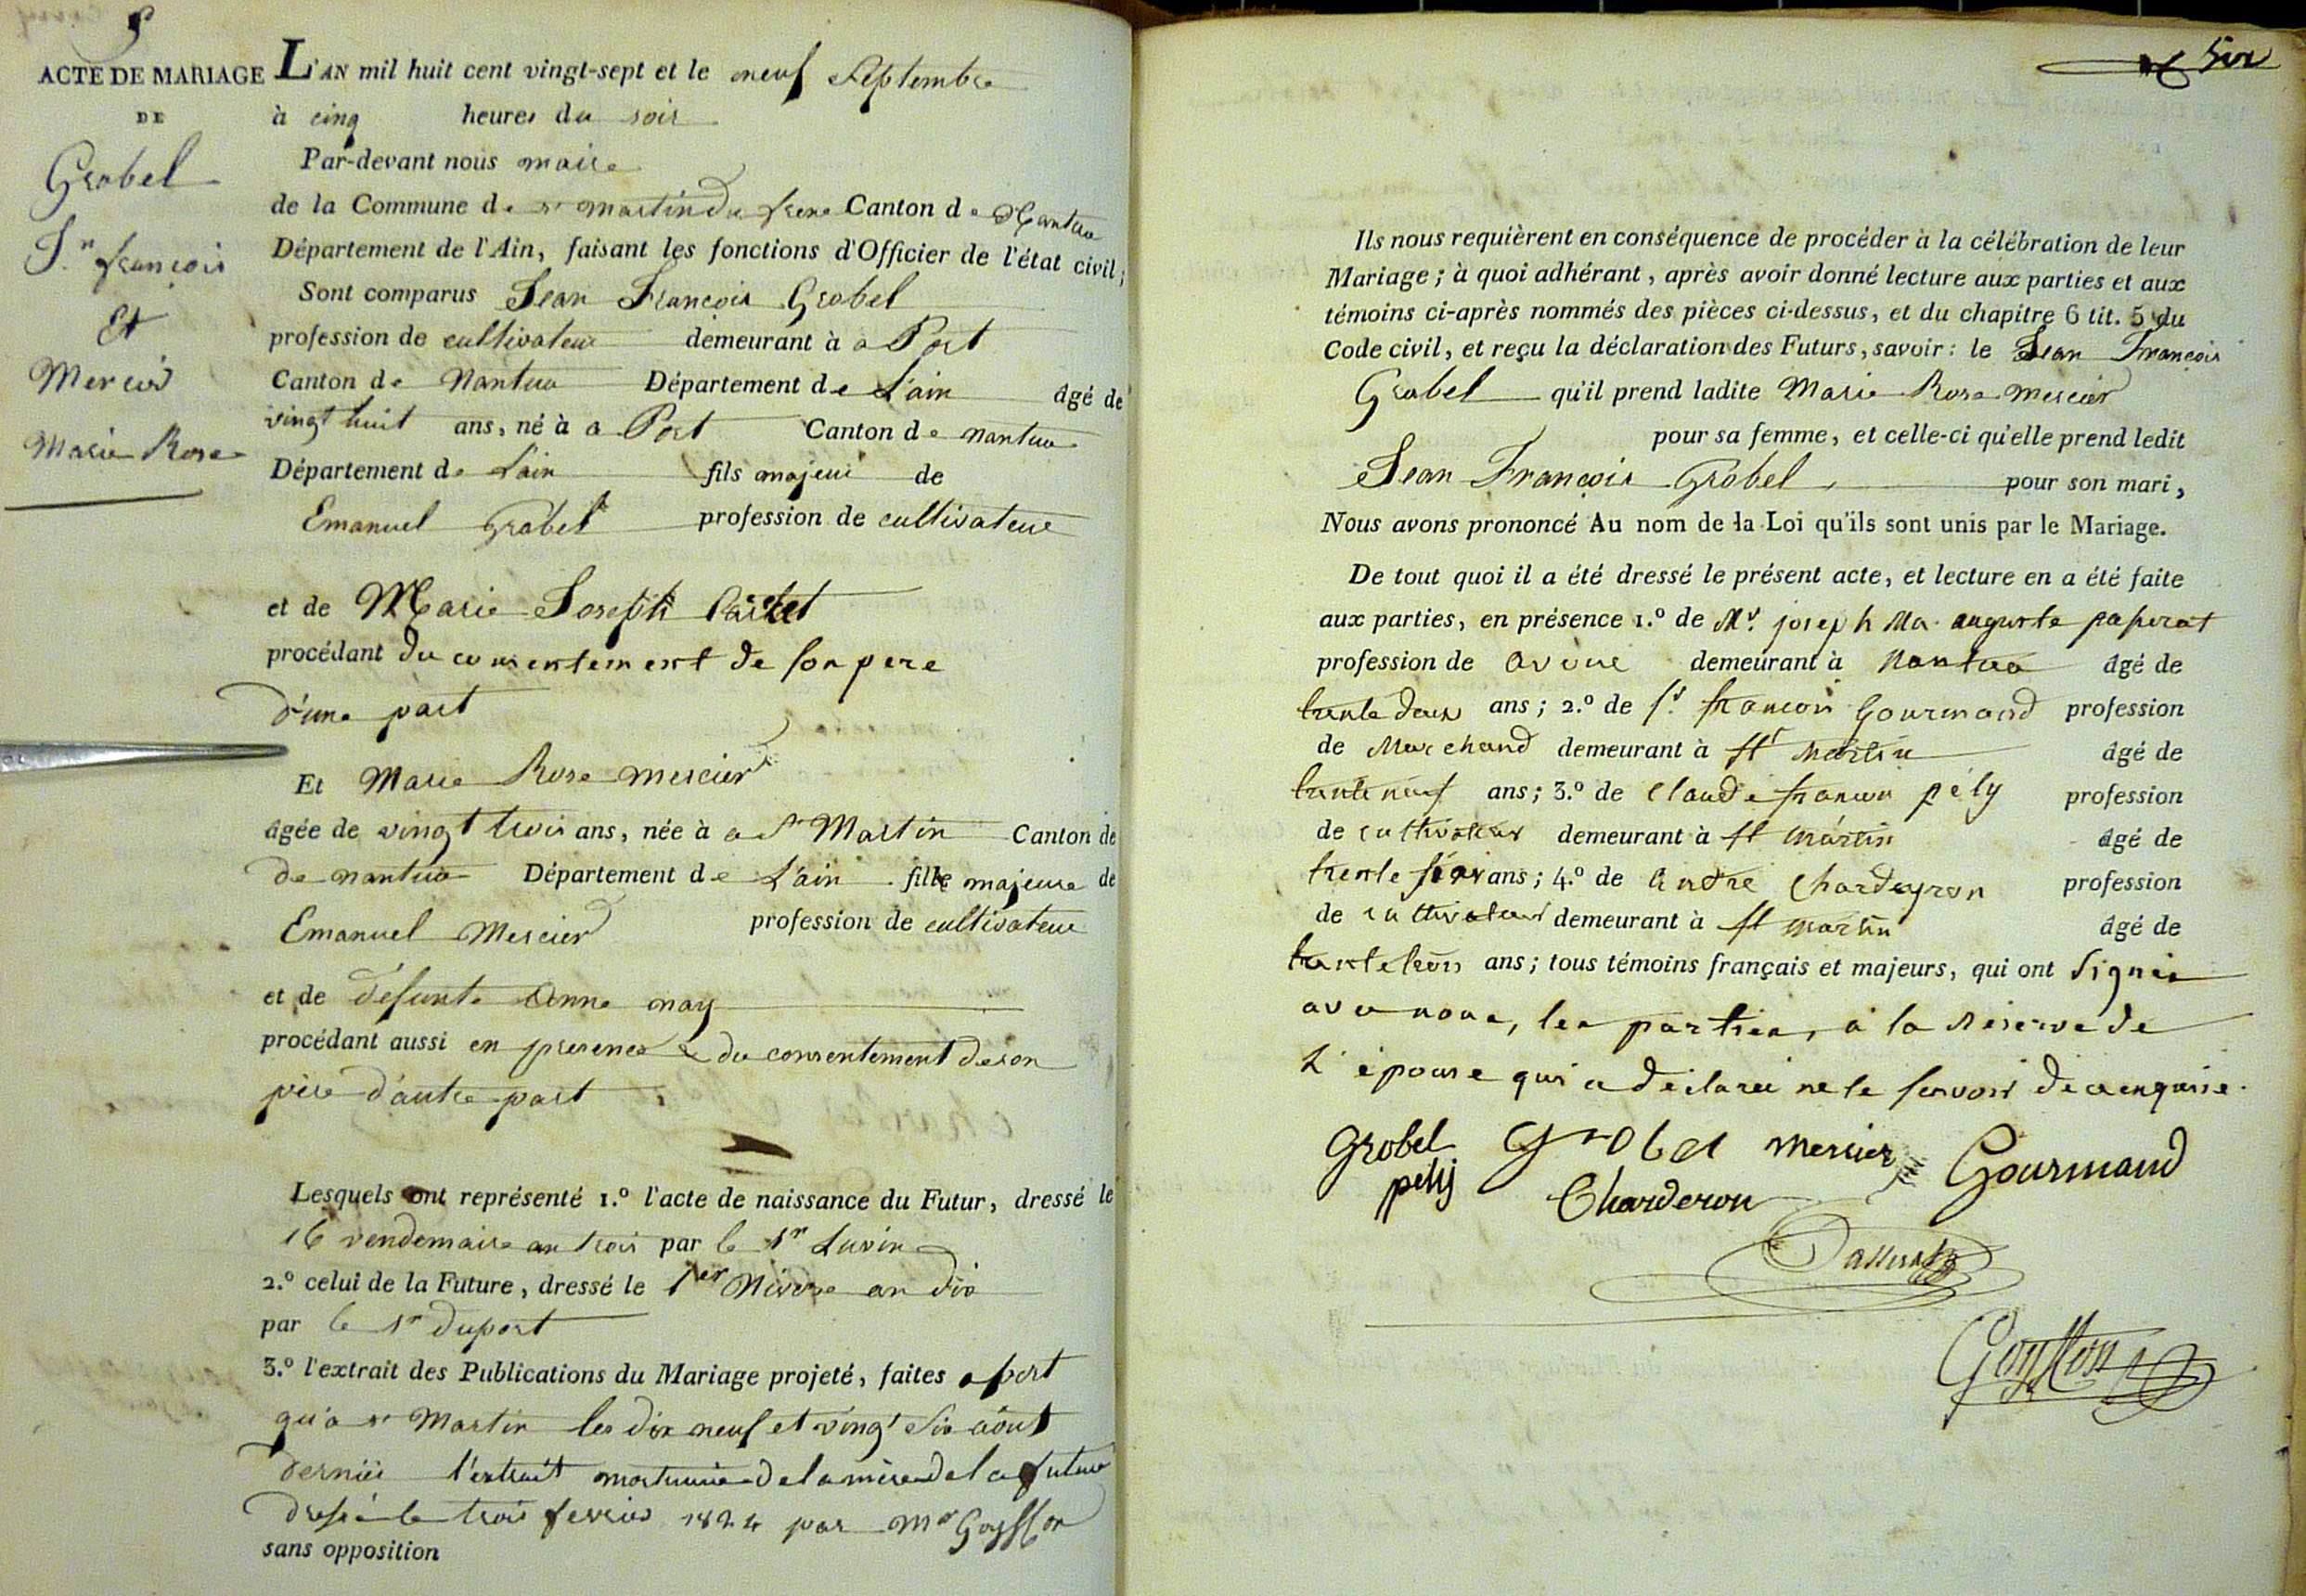 5
ACTE DE MARIAGE
DE
Grobel
Jn françois
Et
Mercier
Marie Rose
L'AN mil huit cent vingt-sept et le neuf Septembre
à cinq heures du soir
Par-devant nous maire
de la Commune de st martin du frene Canton de Nantua
Département de l'Ain, faisant les fonctions d'Officier de l'état civil;
Sont comparus Jean François Grobel
profession de cultivateur demeurant à a Port
Canton de Nantua Département de L'ain âgé de
vingt huit ans, né à a Port Canton de nantua
Département de L'ain fils majeur de
Emanuel Grobel profession de cultivateur
et de Marie Joseph
procédant du consentement de son pere
d'une part
Et Marie Rose mercier
âgée de vingt trois ans, née à a St Martin Canton de
de nantua Département de L'ain fille majeure de
Emanuel Mercier profession de cultivateur
et de défunte Anne may
procédant aussi en presence & du consentement de son
père d'autre part
Lesquels ont représenté 1.º l'acte de naissance du Futur, dressé le
16 vendemaire an trois par le sr Luvin
2.º celui de la Future, dressé le 1er Nivose an dix
par le sr duport
3.º l'extrait des Publications du Mariage projeté, faites a port
qu'a st Martin les dix neuf et vingt six août
dernier l'extrait mortuaire de la mère de la future
dressé le trois fevrier 1824 par Mr Goyffon
sans opposition
six
Ils nous requièrent en conséquence de procéder à la célébration de leur
Mariage; à quoi adhérant, après avoir donné lecture aux parties et aux
témoins ci-après nommés des pièces ci-dessus, et du chapitre 6 tit. 5 du
Code civil, et reçu la déclaration des Futurs, savoir: le Jean François
Grobel qu'il prend ladite Marie Rose mercier
pour sa femme, et celle-ci qu'elle prend ledit
Jean François Grobel pour son mari,
Nous avons prononcé Au nom de la Loi qu'ils sont unis par le Mariage.
De tout quoi il a été dressé le présent acte, et lecture en a été faite
aux parties, en présence 1.º de Mr. joseph Ma. auguste passerat
profession de avoué demeurant à Nantua âgé de
trente deux ans; 2.º de sr. francois Gourmand profession
de Marchand demeurant à st Martin âgé de
trente neuf ans; 3.º de Claude francois pély profession
de cultivateur demeurant à st Martin âgé de
trente six ans; 4.º de andre Chardeyron profession
de cultivateur demeurant à st martin âgé de
trente trois ans; tous témoins français et majeurs, qui ont signés
avec nous, les parties, a la Réserve de
L'épouse qui a déclaré ne le savoir de ce enquise.
Grobel Grobel mercier Gourmand
pelly Charderon
Passerat
Goyffon